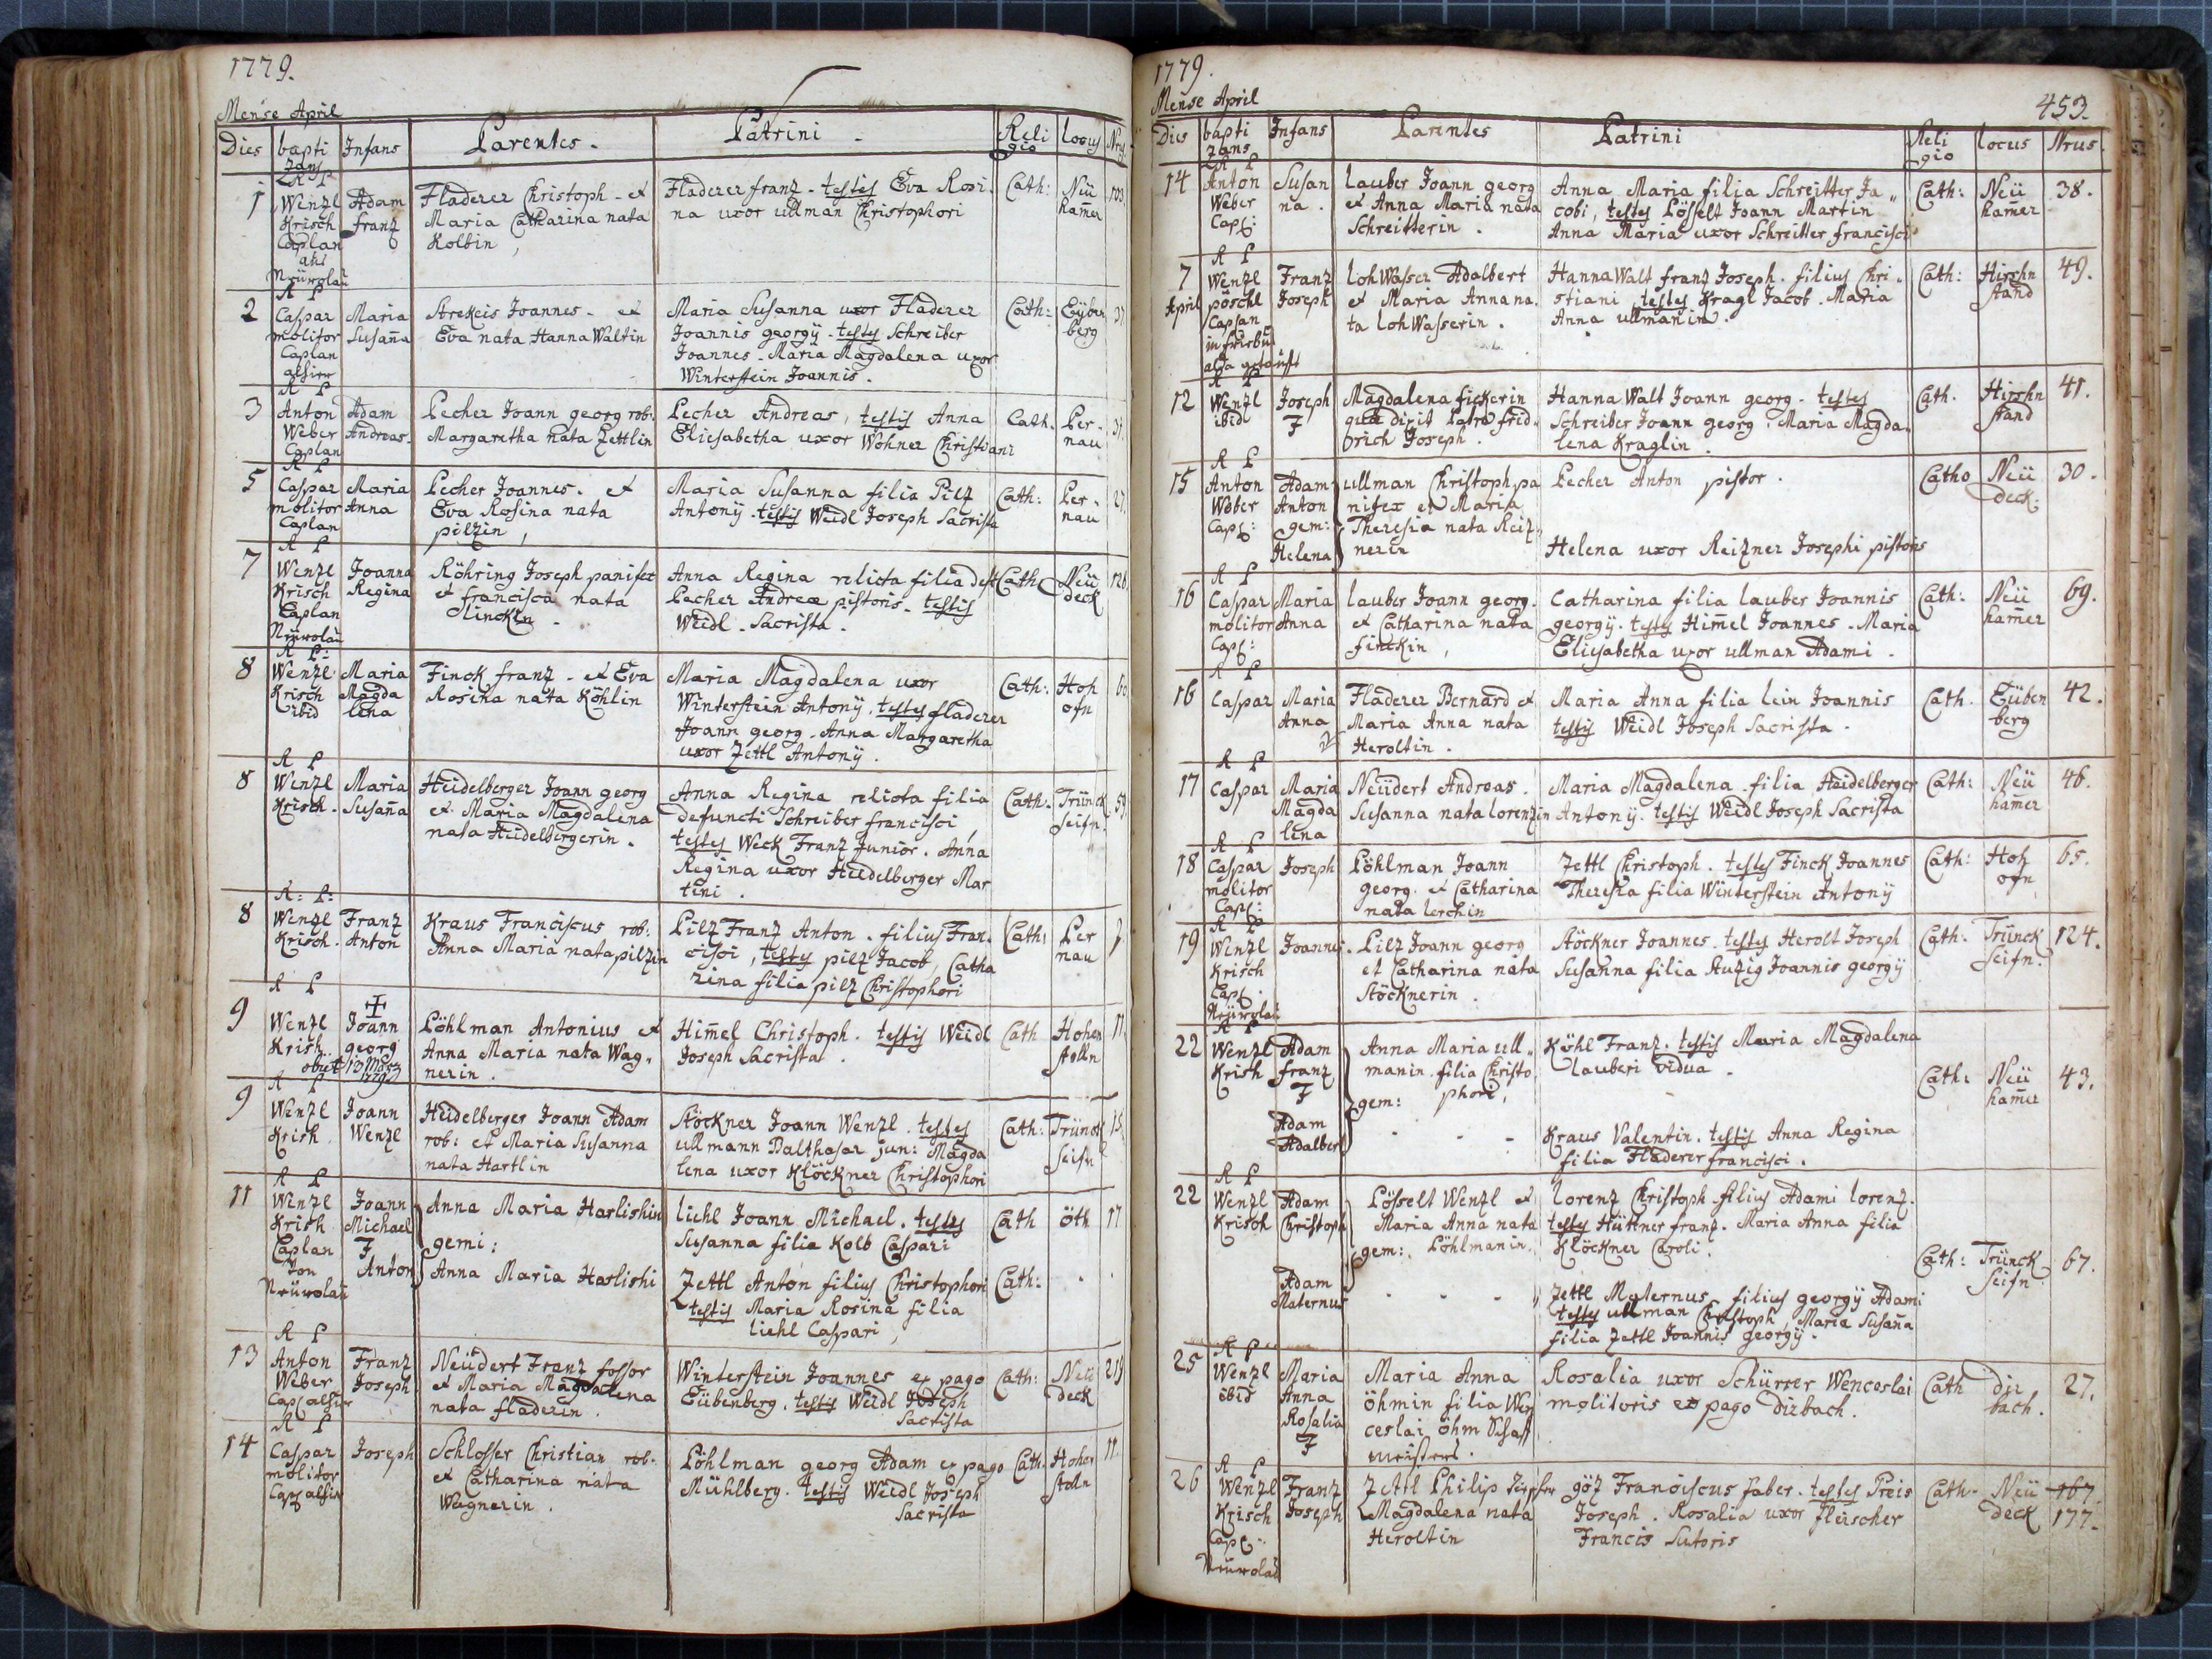 1779.
Mense April
Dies baptizans Infans Parentes. Patrini. Religio locus Nrus
1 R P Wenzl Krisch Caplan aus Neürolau
Adam Franz
Fladerer Christoph - et
Maria Catharina nata
Kolbin,
Fladerer franz - testis Eva Rosi.
na uxor ullman Christophori
Cath: Neü hamer 103.
2 R P Caspar molitor Caplan alhier
Maria Susana
Strekeis Joannes - et
Eva nata Hanna Waltin
Maria Susanna uxor Fladerer
Joannis georgÿ - testes Schreiber
Joannes - Maria Magdalena uxor
Winterstein Joannis.
Cath: Eÿben berg 37
3 R P Anton Weber Caplan
Adam Andreas.
Pecher Joann georg rob:
Margaretha nata Zettlin
Pecher Andreas, testis Anna
Eliesabetha uxor Wohner Christiani
Cath. Per- nau 37.
5 R P Caspar molitor Caplan
Maria Anna
Pecher Joannes. et
Eva Rosina nata
pilzin,
Maria Susanna filia Pilz
Antonÿ. testis Weidl Joseph Sacrista
Cath: Per- nau 27.
7 R P Wenzl Krisch Caplan Neürolau
Joanna Regina
Röhring Joseph panifex
et francisca nata
linckin -
Anna Regina relicta filia deft
Pecher Andreæ pistoris - testis
Weidl - Sacrista.
Cath Neü deck 126
8 R P: Wenzl Krisch ibid
Maria Magda lena
Finck franz - et Eva
Rosina nata Köhlin
Maria Magdalena uxor
Winterstein Antonÿ. testes fladerer
Joann georg - Anna Margaretha
uxor Zettl Antonÿ.
Cath: Hoh ofn 60
8 R P Wenzl Krisch.
Maria Susana
Heidelberger Joann georg
et Maria Magdalena
nata Heidelbergerin.
Anna Regina relicta filia
defuncti Schreiber francisci,
testes Weck Franz junior. Anna
Regina uxor Heidelberger Mar
tini.
Cath. Trünck seifn. 59
8 R: P: Wenzl Krisch.
Franz Anton
Kraus Franciscus rob:
Anna Maria nata pilzin
Pilz Franz Anton. filius Fran.
cisci, testes pilz Jacob, Catha
rina filia pilz Christophori
Cath: Per nau
9 R P Wenzl Krish
Joann georg
obiit 10 1779
Löhlman Antonius et
Anna Maria nata Wag-
nerin.
Himel Christoph. testis Weidl
Joseph Sacrista.
Cath Hohen stolln 11
9 R P Wenzl Krish
Joann Wenzl
Heidelberger Joann Adam
rob: et Maria Susanna
nata Hartlin
Stöckner Joann Wenzl. testes
ullmann Balthasar jun: Magda
lena uxor Klöckner Christophori
Cath: Trünck seifn 15
11 R P Wenzl Krish Caplan von Neürolau
Joann Michael F
Anna Maria Harlishin
gemi:
liehl Joann Michael. testes
Susanna filia Kolb Caspari
Cath öth 17
Anton
Anna Maria Harlishi
Zettl Anton filius Christophori
testis Maria Rosina filia
liehl Caspari,
Cath: . .
13 R P Anton Weber Capl alhier
Franz Joseph
Neüdert Franz fossor
et Maria Magdalena
nata fladerin.
Winterstein Joannes ex pago
Eübenberg. testis Weidl Joseph
Sacrista
Cath: Neü deck 219
14 R P Caspar molitor Capl alhier
Joseph
Schlosser Christian rob.
et Catharina nata
Wagnerin.
Löhlman georg Adam ex pago
Mühlberg. testis Weidl Joseph
Sacrista
Cath. Hohen stolln 11
1779.
Mense April
453.
Dies baptizans Infans Parentes Patrini Religio locus Nrus.
14 R P Anton Weber Capl:
Susan na.
lauber Joann georg
et Anna Maria nata
Schreitterin.
Anna Maria filia Schreitter Ja"
cobi, testes Lösselt Joann Martin
Anna Maria uxor Schreitter francisci
Cath: Neü hamer 38.
7 April R P Wenzl pöschl Caplan in fribus alda getauft
Franz Joseph
loh Wasser Adalbert
et Maria Anna na.
ta loh Wasserin.
Hanna Walt franz Joseph. filius Chri"
stiani testes Kragl Jacob. Maria
Anna ullmanin.
Cath: Hirshn stand 49.
12 R P Wenzl ibid
Joseph F
Magdalena fickerin
quæ dixit Patre frid-
rich Joseph.
Hanna Walt Joann georg - testes
Schreiber Joann georg. Maria Magda.
lena Kraglin.
Cath. Hirshn stand 41.
15 R P Anton Weber Capl:
Adam Anton gem: Helena
ullman Christoph pa
nifex et Maria
Theresia nata Reiz"
nerin
Pecher Anton pistor.
Helena uxor Reizner Josephi pistoris
Catho Neü deck. 30.
16 R P Caspar molitor Capl:
Maria Anna
lauber Joann georg.
et Catharina nata
finckin,
Catharina filia lauber Joannis
georgÿ. testes Himel Joannes - Maria
Eliesabetha uxor ullman Adami.
Cath: Neü hamer 69.
16 R P Caspar
Maria Anna
Fladerer Bernard et
Maria Anna nata
Heroltin.
Maria Anna filia lein Joannis
testis Weidl Joseph Sacrista.
Cath. Eüben berg 42.
17 R P Caspar
Maria Magda lena
Neüdert Andreas.
Susanna nata lorenzin
Maria Magdalena filia Heidelberger
Antonÿ. testis Weidl Joseph Sacrista
Cath: Neü hamer 46.
18 R P Caspar molitor Capl:
Joseph
Löhlman Joann
georg. et Catharina
nata lerchin
Zettl Christoph. testes Finck Joannes
Theresia filia Winterstein Antonÿ
Cath: Hoh ofn 65.
19 R P Wenzl Krisch Capl. Neürolau
Joannes.
Pilz Joann georg
et Catharina nata
Stöcknerin.
Stöckner Joannes. testes Herolt Joseph
Susanna filia Auzig Joannis georgÿ
Cath: Trünck seifn. 124.
22 R P Wenzl Krish
Adam franz F
Anna Maria ull"
manin filia Christo
gem: phori,
Köhl Franz. testis Maria Magdalena
lauberi vidua.
Cath: Neü hamer 43.
Adam Adalbert - - -
Kraus Valentin. testis Anna Regina
filia Fladerer francisci.
22 R P Wenzl Krisch
Adam Christoph
Lösselt Wenzl et
Maria Anna nata
gem: Löhlmanin.
lorenz Christoph filius Adami lorenz.
testes Hüttner franz. Maria Anna filia
Klöckner Caroli.
Cath: Trünck seifn 67.
Adam Maternus - - - "
Zettl Maternus filius georgÿ Adami
testes ullman Christoph, Maria Susana
filia Zettl Joannis georgÿ.
25 R P Wenzl ibid
Maria Anna Rosalia F
Maria Anna
öhmin filia Wen
ceslai öhm Schaff
meisters.
Rosalia uxor Schürrer Wenceslai
molitoris ex pago Dirbach.
Cath dir bach. 27.
26 R P Wenzl Krisch Capl: Neürolau
Franz Joseph
Zettl Philip
Magdalena nata
Heroltin
göz Franciscus faber. testes Preis
Joseph. Rosalia uxor fleischer
Francis Sutoris
Cath. Neü deck 167. 177.